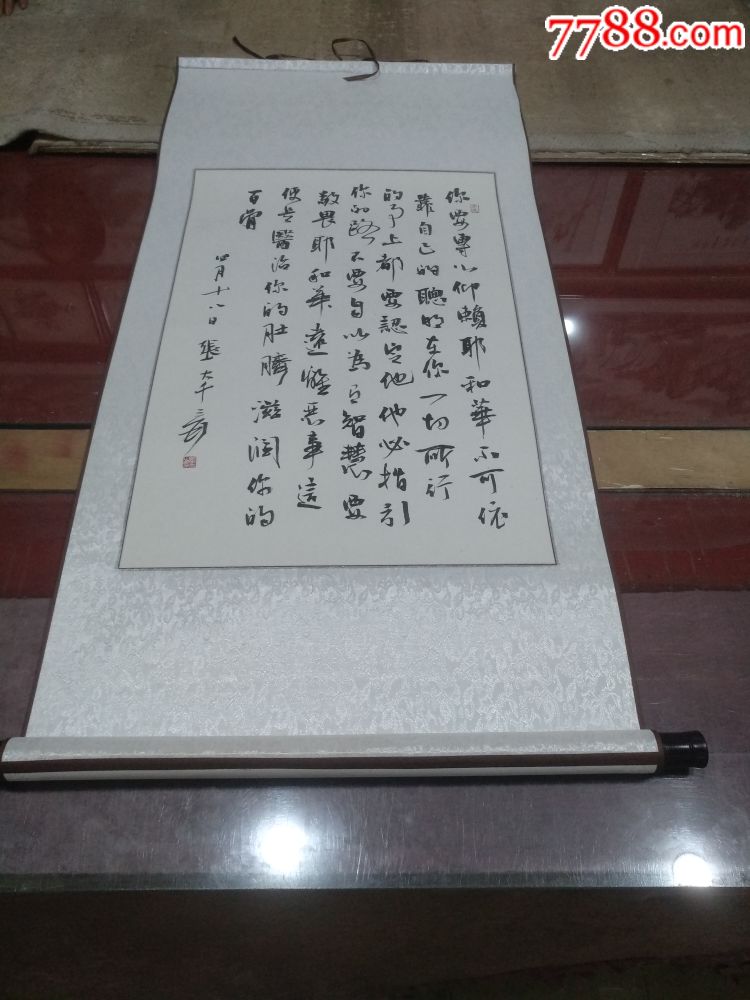 7788.com
你要專心仰賴耶和華不可依
靠自己的聰明在你一切所行
的事上都要認定他他必指引
你的路不要自以為有智慧要
敬畏耶和華遠離惡事這
便是醫治你的肚臍滋潤你的
百骨
四月十八日張大千爰